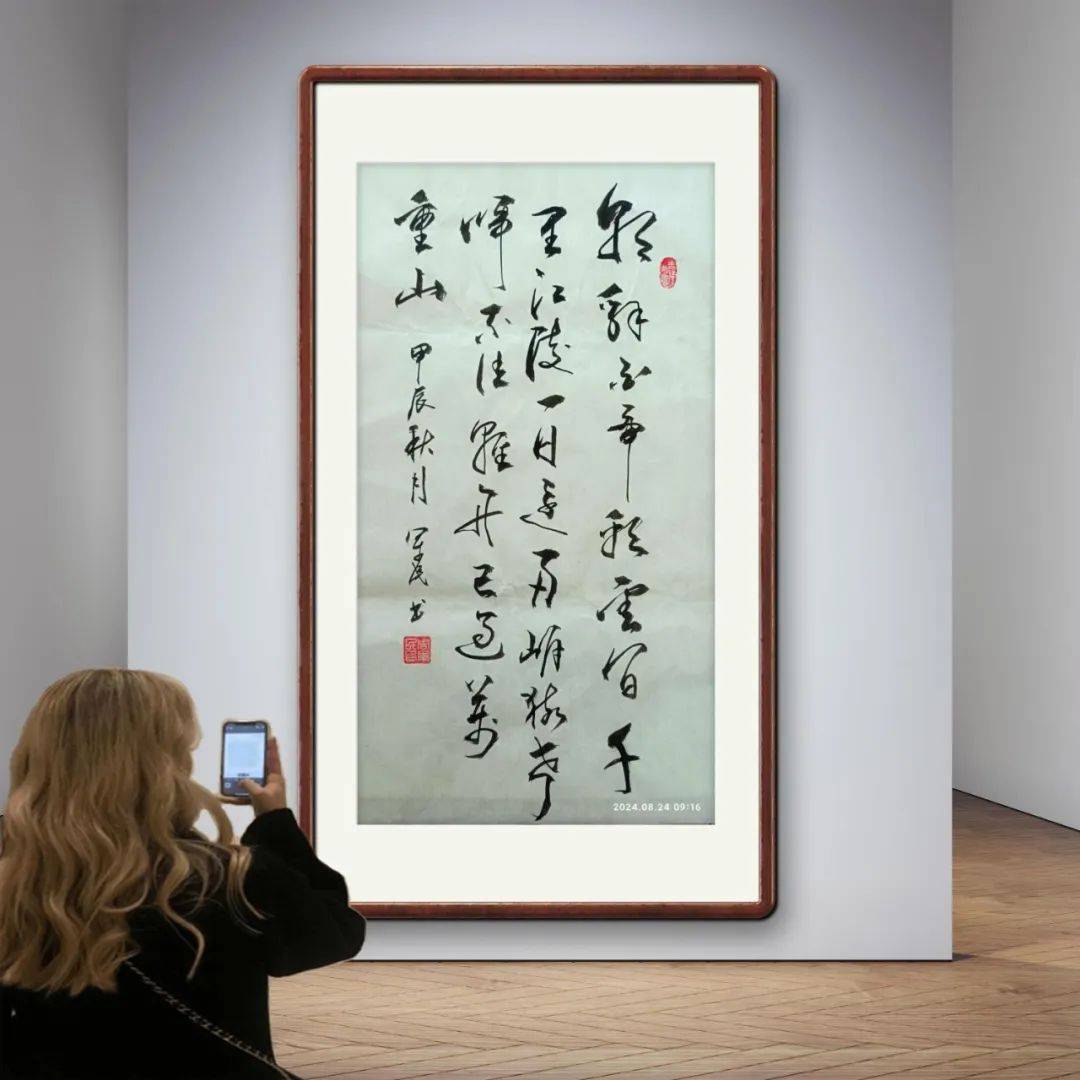 朝辞白帝彩雲间千
里江陵一日还两岸猿声
啼不住轻舟已过萬
重山 甲辰秋月 军民书
2024.08.24 09:16